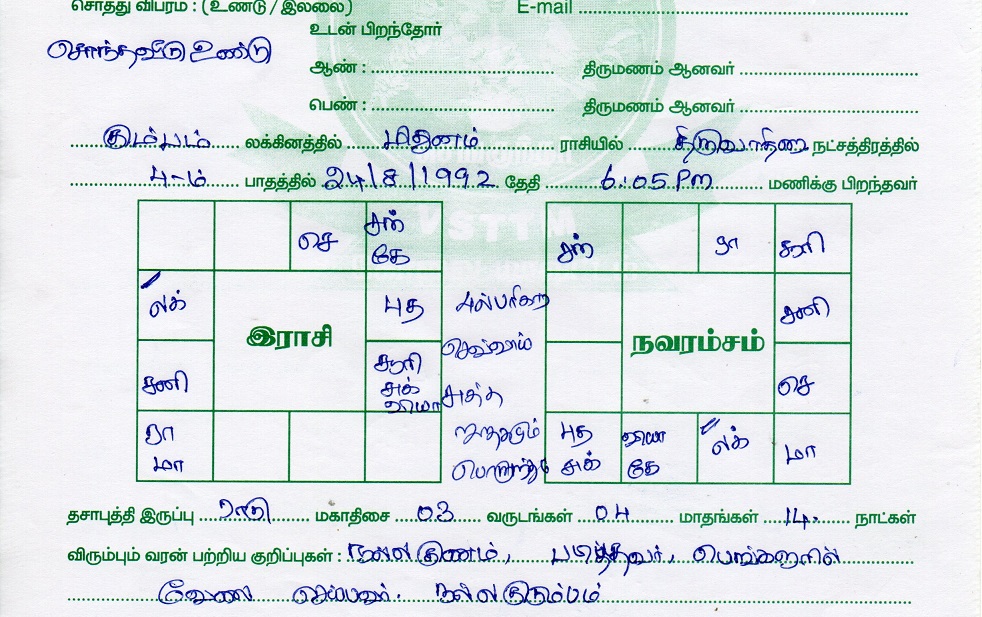 சொத்து விபரம் : (உண்டு / இல்லை) E-mail
சொந்தவீடு உண்டு
உடன் பிறந்தோர்
ஆண் : திருமணம் ஆனவர்
பெண் : திருமணம் ஆனவர்
கும்பம் லக்கினத்தில் மிதுனம் ராசியில் திருவாதிரை நட்சத்திரத்தில்
4-ம் பாதத்தில் 24/8/1992 தேதி 6:05 Pm மணிக்கு பிறந்தவர்
VSTTM
செ சந் கே
லக் புத
இராசி
சனி சூரி சுக் வியா
ரா மா
பரிகார
செவ்வாய்
சுத்த
ஜாதகமும்
சந் ரா சூரி
சனி
நவரம்சம்
செ
புத சுக் வியா கே லக் மா
தசாபுத்தி இருப்பு ராகு மகாதிசை 03 வருடங்கள் 04 மாதங்கள் 14 நாட்கள்
விரும்பும் வரன் பற்றிய குறிப்புகள் : நல்ல குணம், படித்தவர், பெங்களூரில்
வேலை நல்ல குடும்பம்